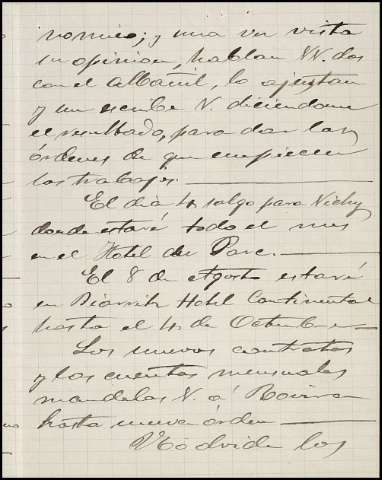 nomico; y una vez vista
su opinion, hablan VV. dos
con el albañil, lo ajustan
y me escribe V. diciendome
el resultado, para dar las
órdenes de que empiecen
los trabajos.
El dia 4 salgo para Vichy
donde estaré todo el mes
en el Hotel du Parc.
El 8 de Agosto estaré
en Biarritz Hotel Continental
hasta el 4 de Octubre
Los nuevos contratos
y las cuentas mensuales
mandelas V. á
hasta nueva órden
No olvide los